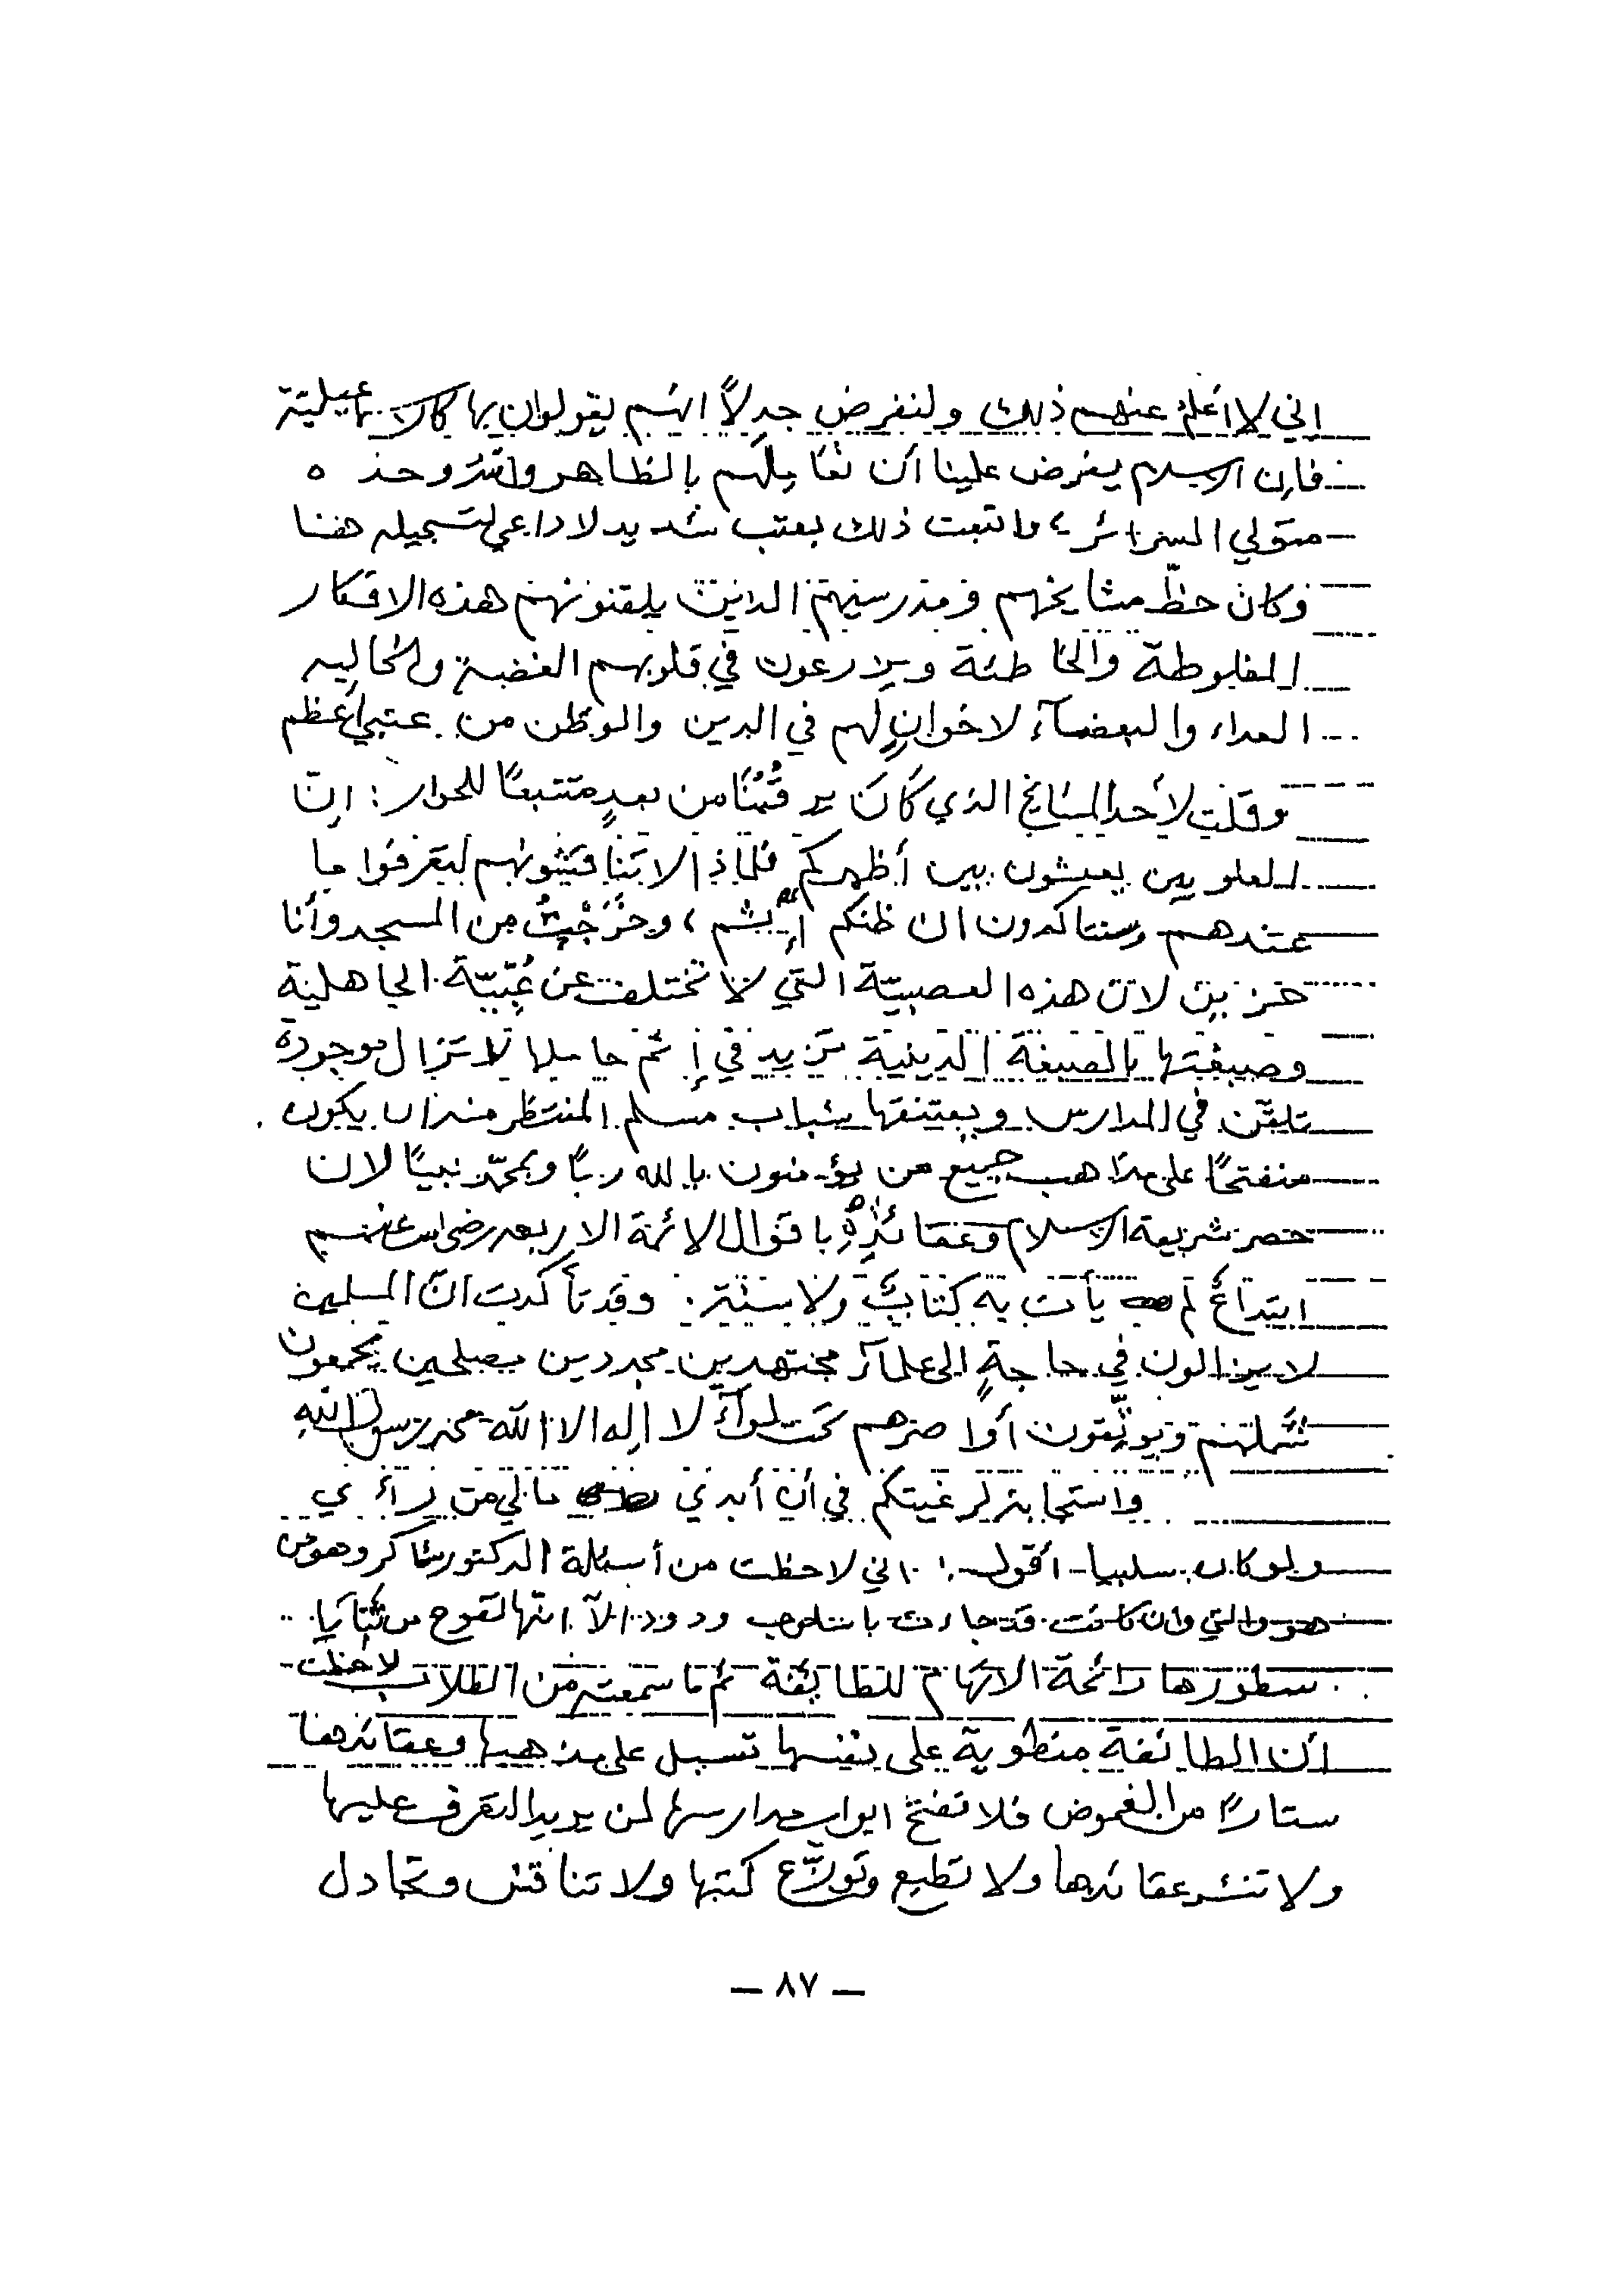 اني لا أعلم عنهم ذلك ولنفرض جدلاً انهم يقولون بها كالاسماعيلية
فإن الاسلام يفرض علينا أن نقابلهم بالظاهر والله وحده
متولي السرائر ، واتبعت ذلك بعتب شديد لا داعي لتسجيله هنا
وكان حظ مشايخهم ومدرسيهم الذين يلقنونهم هذه الافكار
المغلوطة والخاطئة ويزرعون في قلوبهم الغضة
العداء والبغضاء لاخوان لهم في الدين والوطن من عتبي أعظم
وقلت لأحد المشايخ الذي كان يرقبنا من بعد متتبعاً للحوار : إن
العلويين يعيشون بين أظهركم فلماذا لا تناقشونهم لتعرفوا ما
عندهم وستتأكدون ان ظنكم إثم ، وخرجت من المسجد وأنا
حزين لان هذه العصبية التي لا تختلف عن عُبّيّة الجاهلية
وصبغتها بالصبغة الدينية تزيد في إثم حاملها لا تزال موجودة
تلقن في المدارس ويعتنقها شباب مسلم المنتظر منه ان يكون
منفتحاً على مذاهب جميع من يؤمنون بالله رباً وبمحمد نبياً لان
حصر شريعة الاسلام وعقائده باقوال الائمة الاربعة رضي الله عنهم
ابتداع لم يأت به كتاب ولا سنة . وقد تأكدت ان المسلمين
لا يزالون في حاجة الى علماء مجتهدين مجددين مصلحين يجمعون
شملهم ويوثقون أواصرهم تحت لواء لا اله الا الله محمد رسول الله
واستجابة لرغبتكم في أن أبدي ما لي من رأي
ولو كان سلبيا - أقول : اني لاحظت من أسئلة الدكتور شاكر وهو من
هو والتي وان كانت قد جاءت باسلوب ودود الا انها تفوح من ثنايا
سطورها رائحة الاتهام للطائفة ثم ما سمعته من الطلاب لاحظت
أن الطائفة منطوية على نفسها تسبل على مذهبها وعقائدها
ستاراً من الغموض فلا تفتح ابواب مدارسها لمن يريد التعرف عليها
ولا تنشر عقائدها ولا تطبع وتوزع كتبها ولا تناقش وتجادل
— ٨٧ —